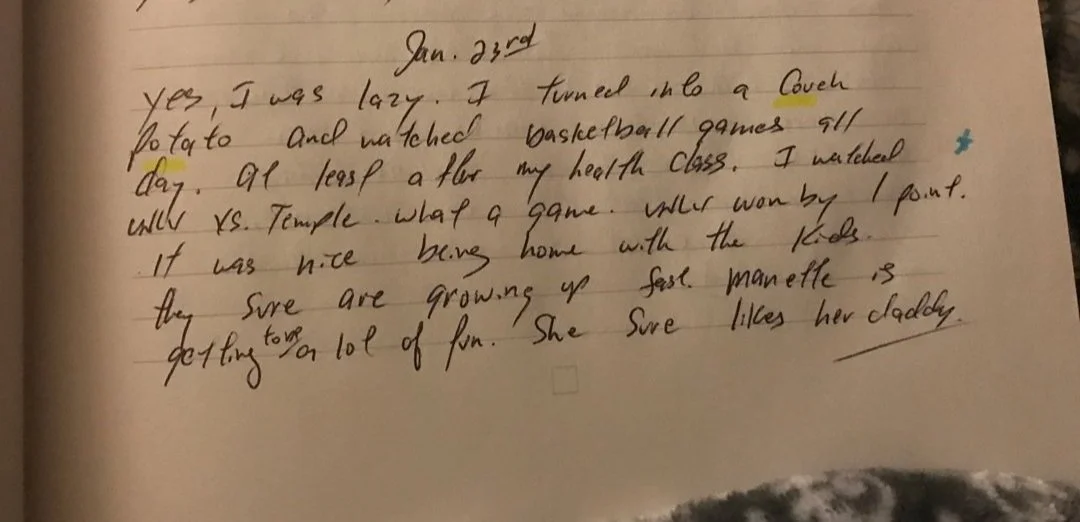 Jan. 23rd
Yes, I was lazy. I turned into a Couch
Potato and watched basketball games all
day. at least after my health class. I watched
UNLV VS. Temple. what a game. UNLV won by 1 point.
It was nice being home with the Kids.
they sure are growing up fast. Manette is
getting to be a lot of fun. She sure likes her daddy.